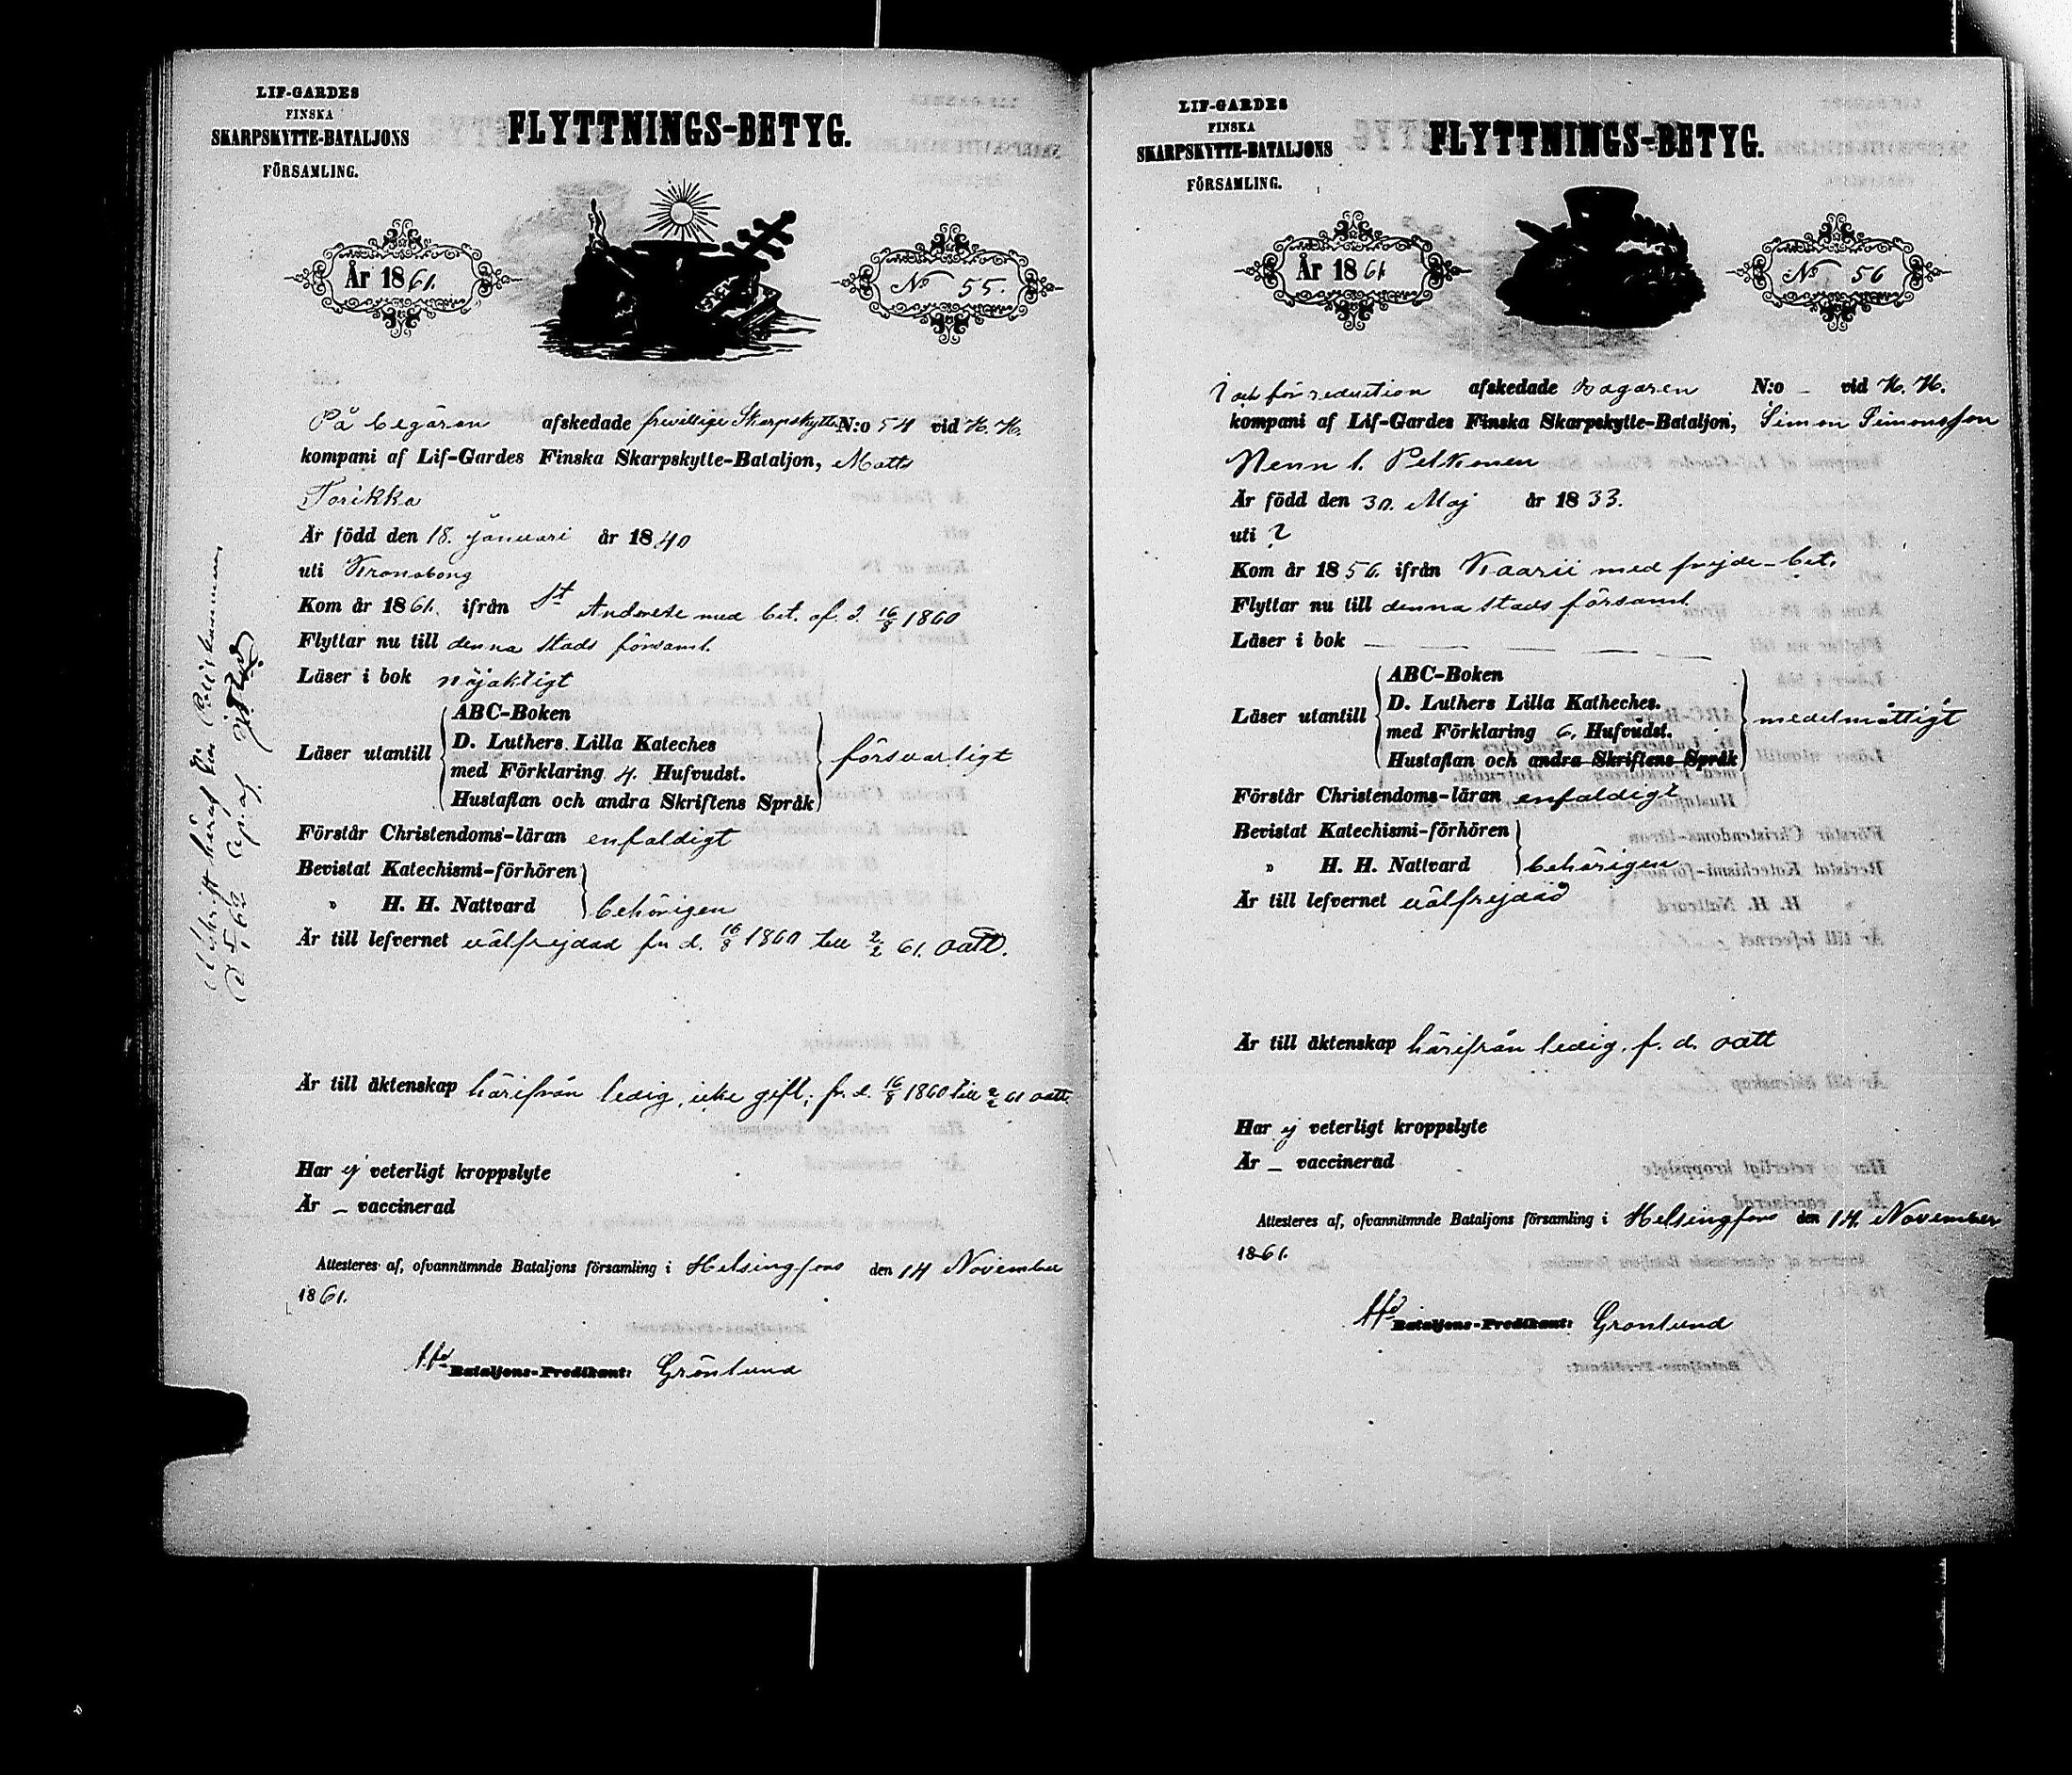 LIF-GARDES
FINSKA
SKARPSKYTTE-BATALJONS
FÖRSAMLING.
FLYTTNINGS-BETYG.
År 1861.
No 55.
På begäran afskedade frivillige Skarpskytte N:o 54 vid K. K.
kompani af Lif-Gardes Finska Skarpskytte-Bataljon, Matts
Torikka
Är född den 18. Januari år 1840
uti Kronoborg
Kom år 1861. ifrån St Andreæ med bet. af d. 16/8 1860
Flyttar nu till denna stads församl.
Läser i bok nöjaktigt
Läser utantill
ABC-Boken
D. Luthers Lilla Kateches
med Förklaring 4. Hufvudst.
Hustaflan och andra Skriftens Språk
försvarligt
Förstår Christendoms-läran enfaldigt
Bevistat Katechismi-förhören
" H. H. Nattvard
behörigen
Är till lefvernet välfrejdad fr. d. 16/8 1860 till 2/2 61. oatt.
Är till äktenskap härifrån ledig, icke gift; fr. d. 16/8 1860 till 2/2 61 oatt.
Har ej veterligt kroppslyte
Är _ vaccinerad
Attesteres af, ofvannämnde Bataljons församling i Helsingfors den 14 November
1861.
Bataljons-Predikant: Grönlund
LIF-GARDES
FINSKA
SKARPSKYTTE-BATALJONS
FÖRSAMLING.
FLYTTNINGS-BETYG.
År 1861
No 56
i och för reduction afskedade Bagaren N:o _ vid K. K.
kompani af Lif-Gardes Finska Skarpskytte-Bataljon, Simon Simonsson
Henn l. Pelkonen
Är född den 30. Maj år 1833.
uti ?
Kom år 1856. ifrån Kaavi med frejde-bet.
Flyttar nu till denna stads församl.
Läser i bok — — — —
Läser utantill
ABC-Boken
D. Luthers Lilla Katheches.
med Förklaring 6. Hufvudst.
Hustaflan och andra Skriftens Språk
medelmåttigt
Förstår Christendoms-läran enfaldigt
Bevistat Katechismi-förhören
" H. H. Nattvard
behörigen
Är till lefvernet välfrejdad
Är till äktenskap härifrån ledig, f. d. oatt
Har ej veterligt kroppslyte
Är _ vaccinerad
Attesteres af, ofvannämnde Bataljons församling i Helsingfors den 14. November
1861.
Bataljons-Predikant: Gronlund